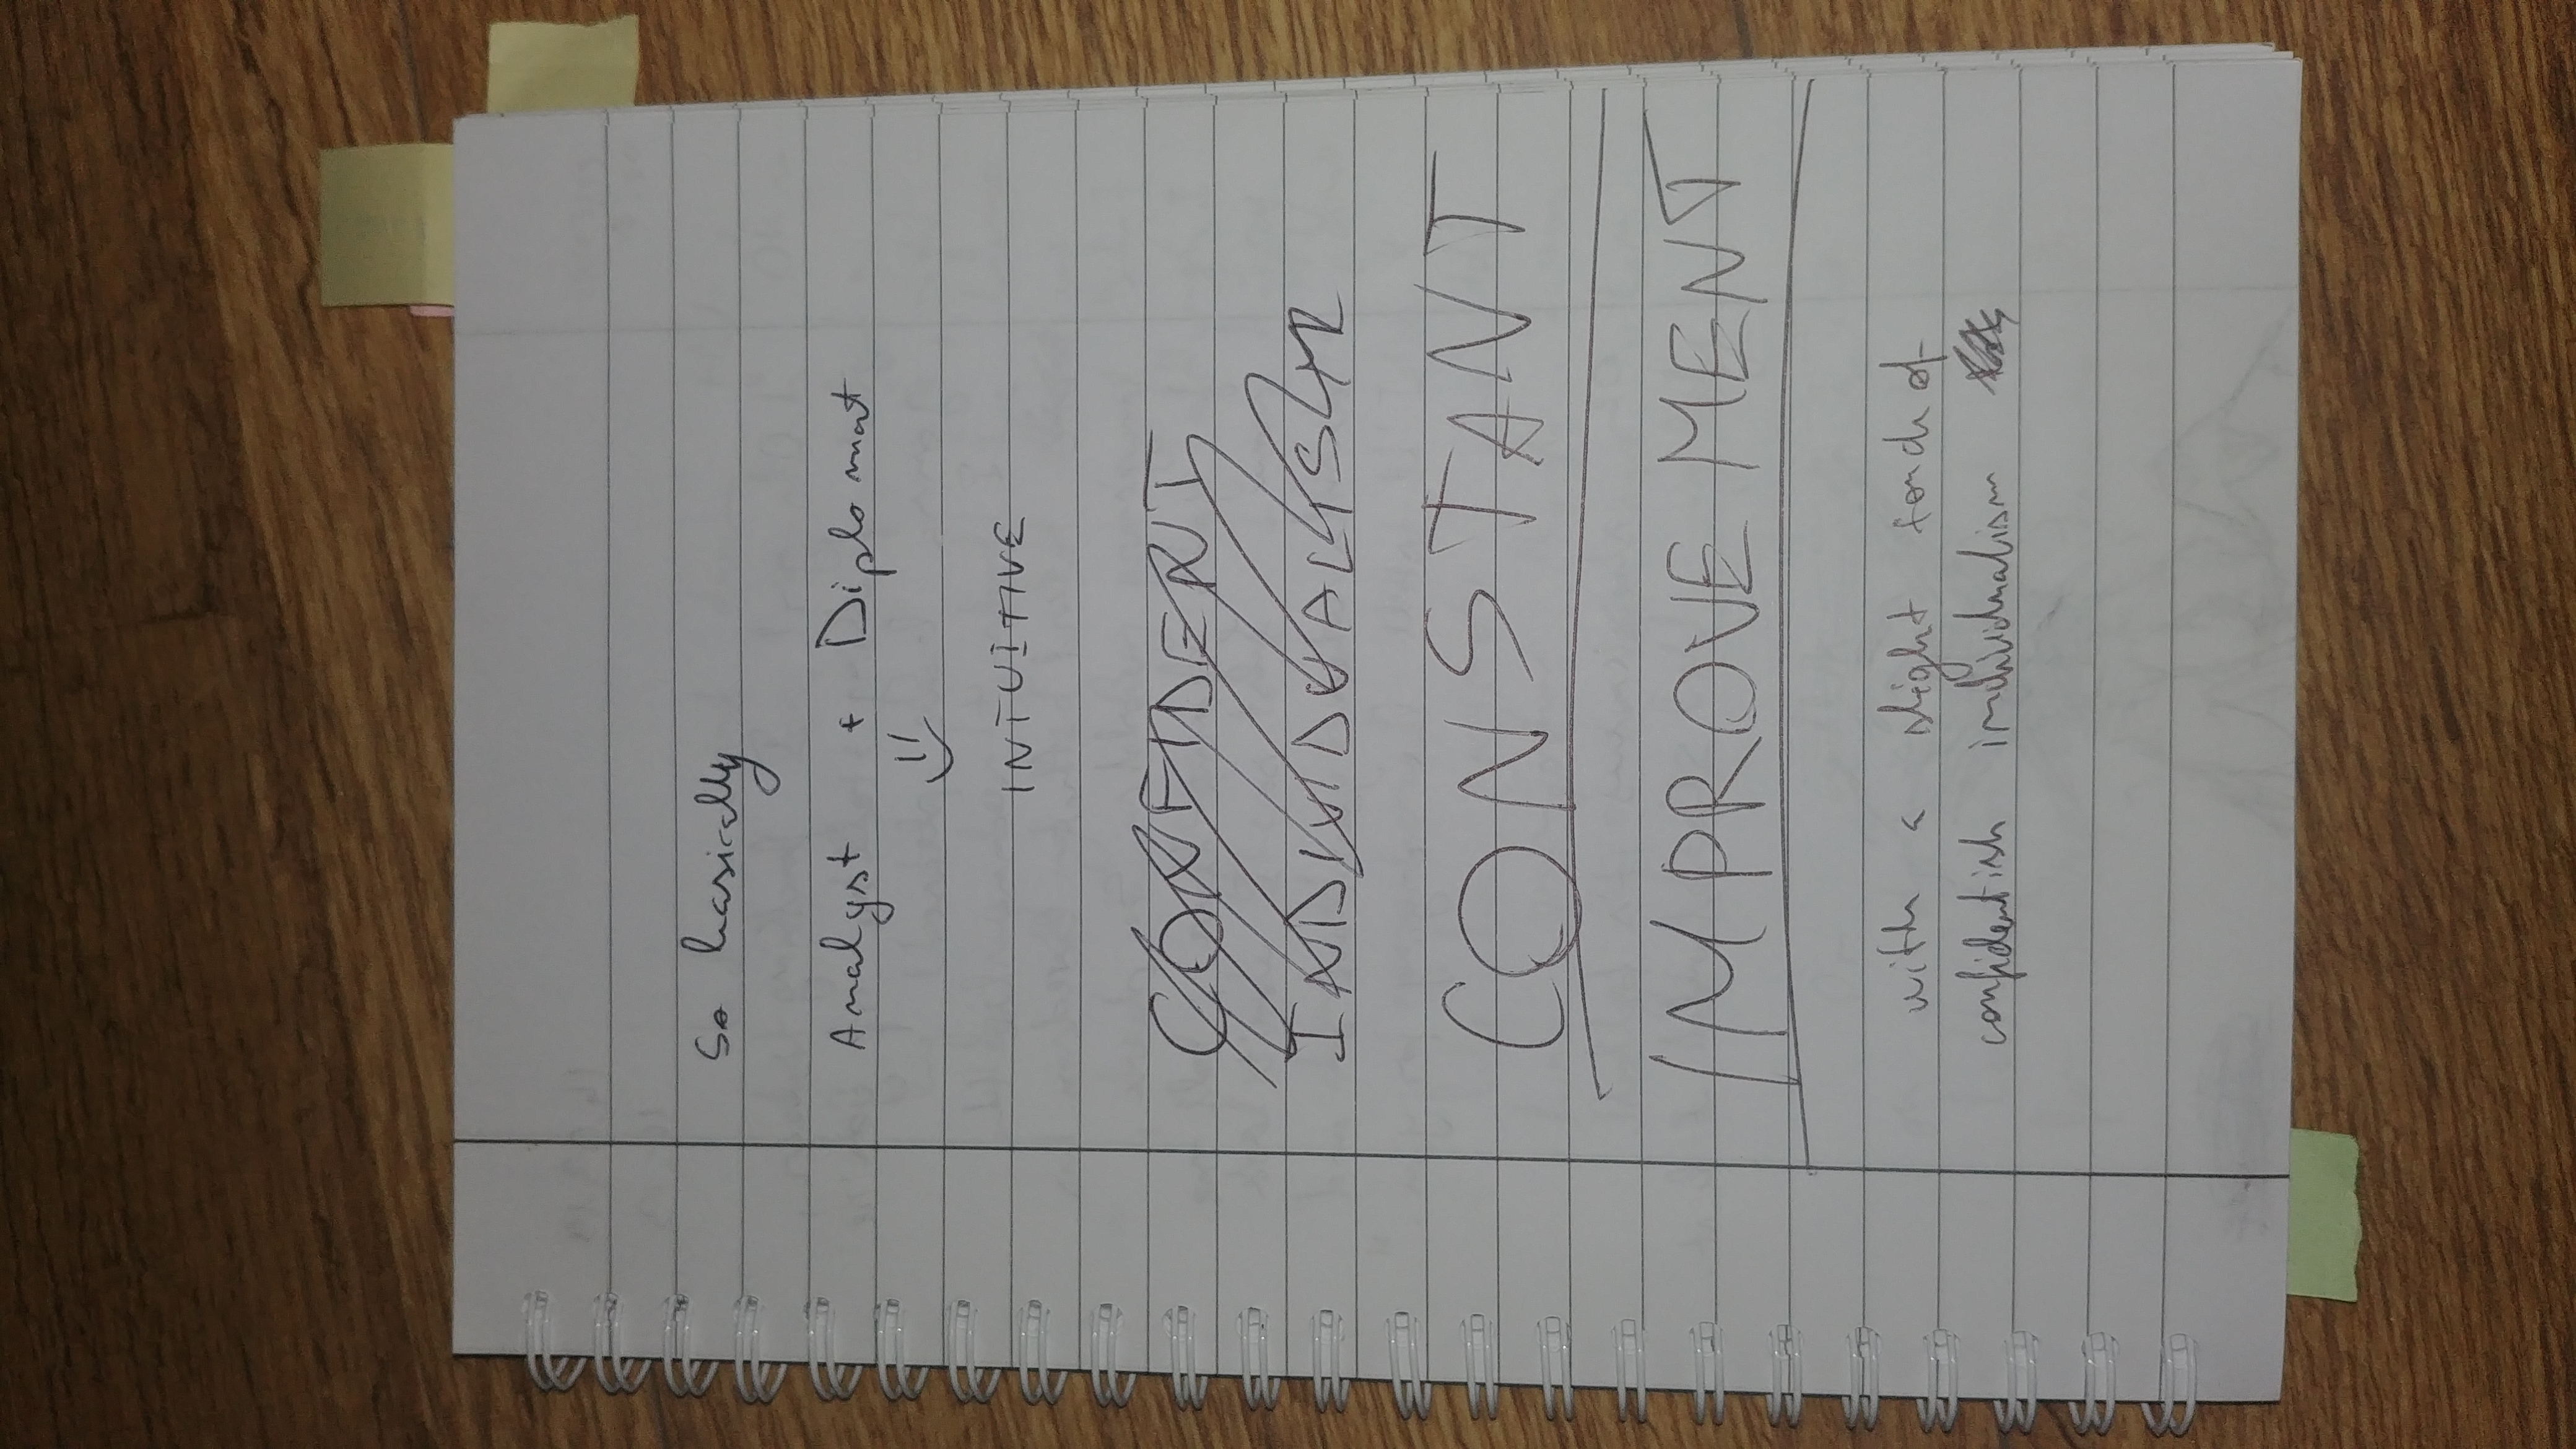 So basically
Analyst + Diplomat
INTUITIVE
CONFIDENT
CONSTANT
IMPROVEMENT
with a slight touch of
confidentish individualism